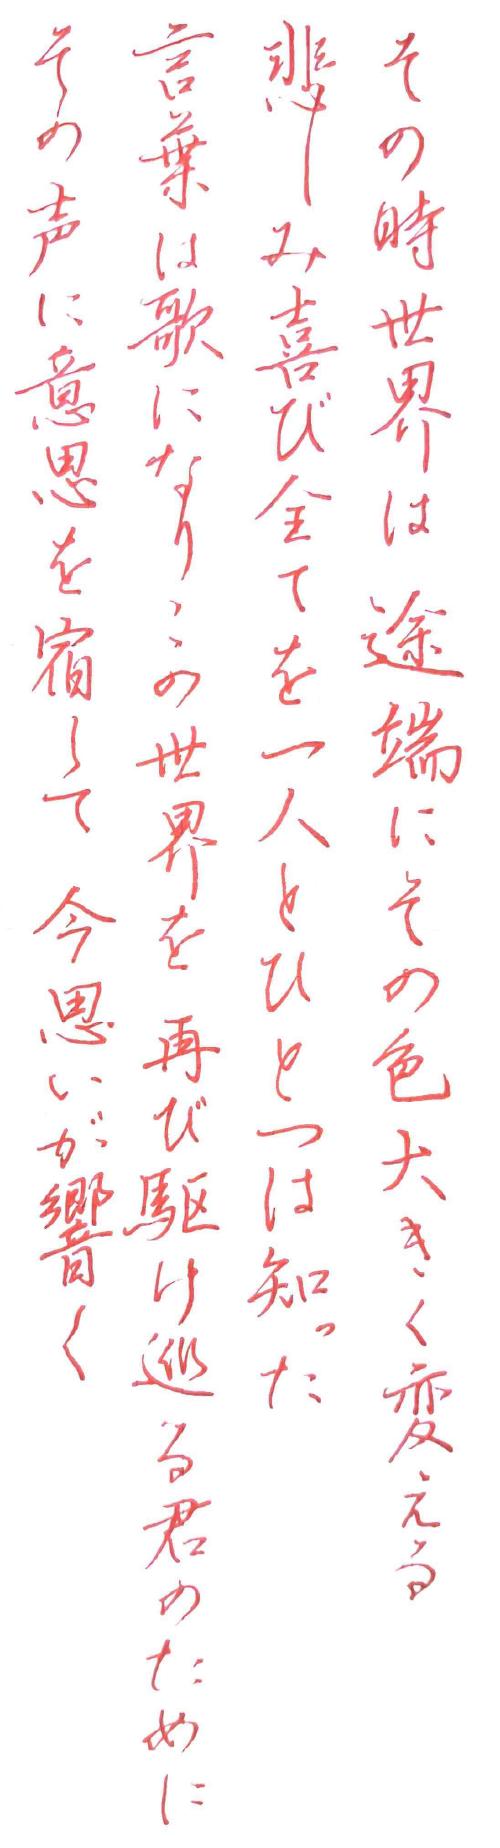 その時世界は途端にその色大きく変える
悲しみ喜び全てを一人とひとつは知った
言葉は歌になりこの世界を再び駆け巡る君のために
その声に意思を宿して今思いが響く